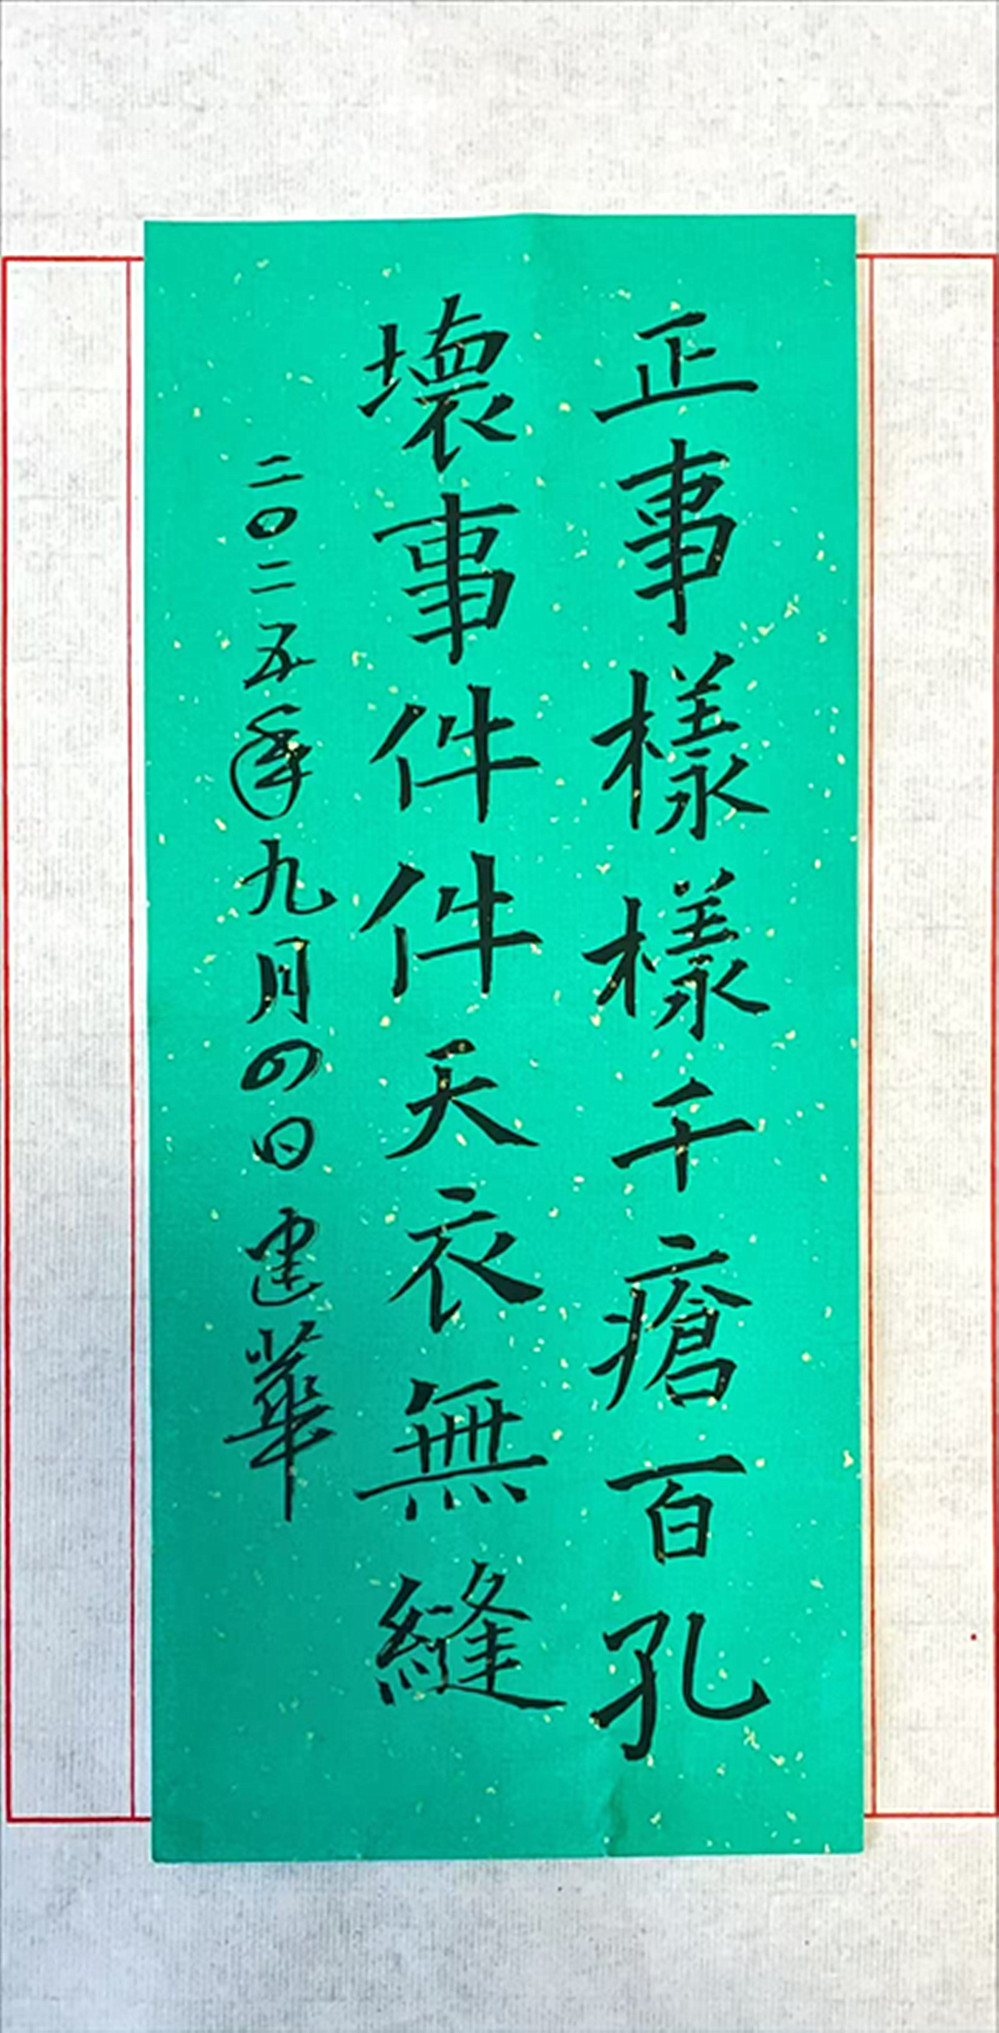 正事樣樣千瘡百孔
壞事件件天衣無縫
二〇二五年九月四日建華